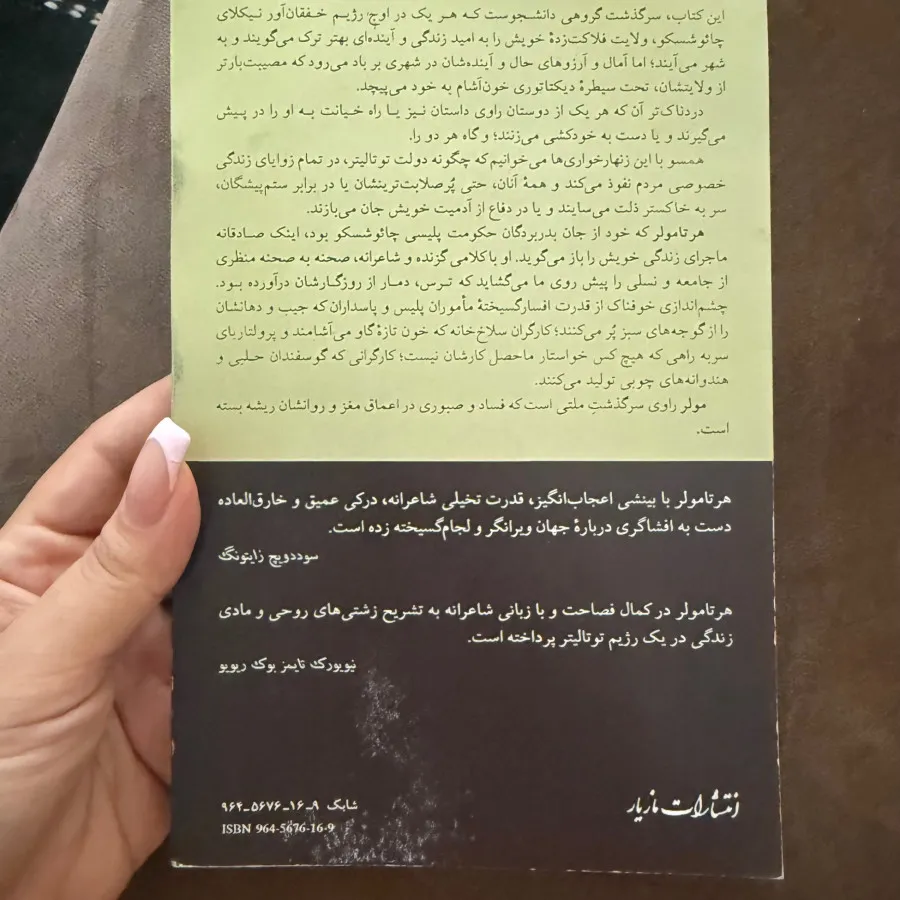 این کتاب، سرگذشت گروهی دانشجوست که هر یک در اوج رژیم خفقان‌آور نیکلای
چائوشسکو، ولایت فلاکت‌زدهٔ خویش را به امید زندگی و آینده‌ای بهتر ترک می‌گویند و به
شهر می‌آیند؛ اما آمال و آرزوهای حال و آینده‌شان در شهری بر باد می‌رود که مصیبت‌بارتر
از ولایتشان، تحت سیطرهٔ دیکتاتوری خون‌آشام به خود می‌پیچد.
دردناک‌تر آن که هر یک از دوستان راوی داستان نیز یا راه خیانت به او را در پیش
می‌گیرند و یا دست به خودکشی می‌زنند؛ و گاه هر دو را.
همسو با این زنهارخواری‌ها می‌خوانیم که چگونه دولت توتالیتر، در تمام زوایای زندگی
خصوصی مردم نفوذ می‌کند و همهٔ آنان، حتی پُرصلابت‌ترینشان یا در برابر ستم‌پیشگان،
سر به خاکستر ذلت می‌سایند و یا در دفاع از آدمیت خویش جان می‌بازند.
هرتامولر که خود از جان بدربردگان حکومت پلیسی چائوشسکو بود، اینک صادقانه
ماجرای زندگی خویش را باز می‌گوید. او با کلامی گزنده و شاعرانه، صحنه به صحنه منظری
از جامعه و نسلی را پیش روی ما می‌گشاید که ترس، دمار از روزگارشان درآورده بود.
چشم‌اندازی خوفناک از قدرت افسارگسیختهٔ مأموران پلیس و پاسداران که جیب و دهانشان
را از گوجه‌های سبز پُر می‌کنند؛ کارگران سلاخ‌خانه که خون تازهٔ گاو می‌آشامند و پرولتاریای
سربه راهی که هیچ کس خواستار ماحصل کارشان نیست؛ کارگرانی که گوسفندان حلبی و
هندوانه‌های چوبی تولید می‌کنند.
مولر راوی سرگذشتِ ملتی است که فساد و صبوری در اعماق مغز و روانشان ریشه بسته
است.
هرتامولر با بینشی اعجاب‌انگیز، قدرت تخیلی شاعرانه، درکی عمیق و خارق‌العاده
دست به افشاگری دربارهٔ جهان ویرانگر و لجام‌گسیخته زده است.
سوددویچ زایتونگ
هرتامولر در کمال فصاحت و با زبانی شاعرانه به تشریح زشتی‌های روحی و مادی
زندگی در یک رژیم توتالیتر پرداخته است.
نیویورک تایمز بوک ریویو
انتشارات مازیار
شابک ۹-۱۶-۵۶۷۶-۹۶۴
ISBN 964-5676-16-9